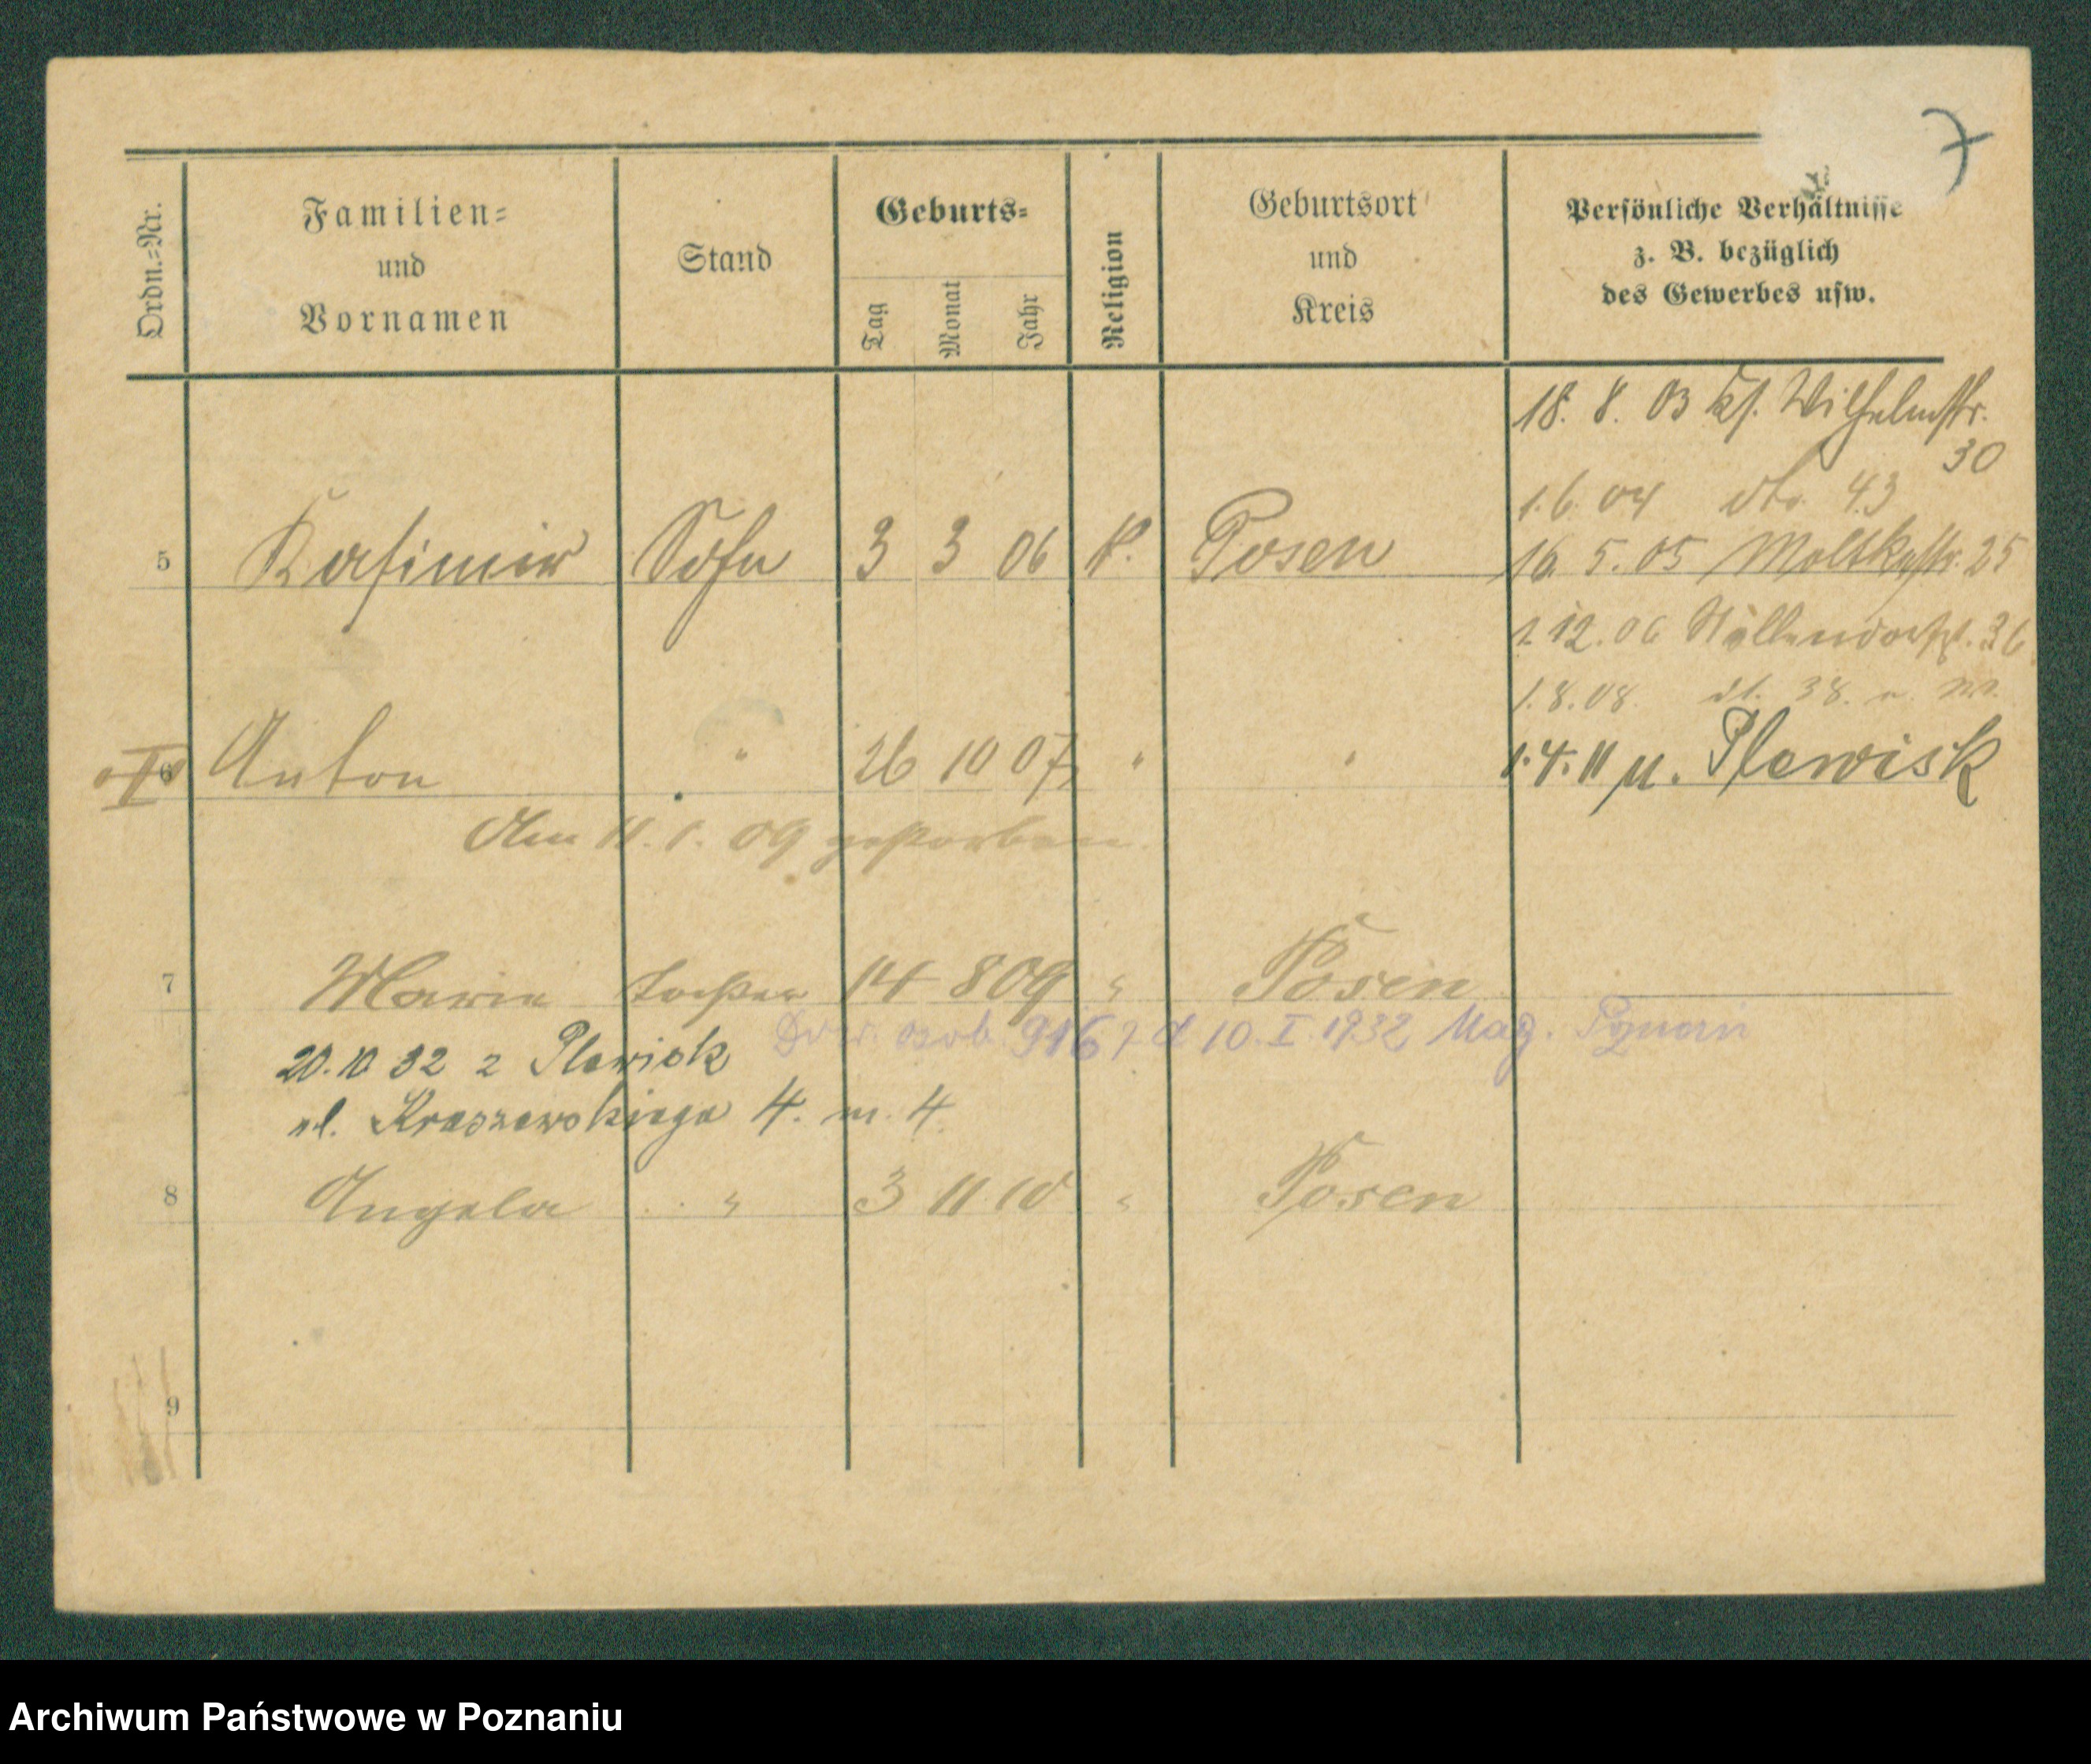 7
Ordn.=Nr.
Familien=
und
Vornamen
Stand
Geburts=
Tag
Monat
Jahr
Religion
Geburtsort
und
Kreis
Persönliche Verhältnisse
z. B. bezüglich
des Gewerbes usw.
18. 8. 03 Wilhelmstr.
30
1. 6. 04 dto. 43
5 Kasimir Sohn 3 3 06 K. Posen
16. 5. 05 Moltkestr. 25
1. 12. 06 36
1. 8. 08. 38.
6 Anton " 26 10 07 " "
1. 4. 11 u. Plewisk
Am 11. 1. 09 gestorben.
7 Maria Tochter 14 8 09 " Posen
Dow. osob. 9167 d 10. I. 1932 Mag. Poznań
20. 10 32 z Plewisk
ul. Kraszewskiego 4. m. 4.
8 Angela " 3 11 10 " Posen
9
Archiwum Państwowe w Poznaniu